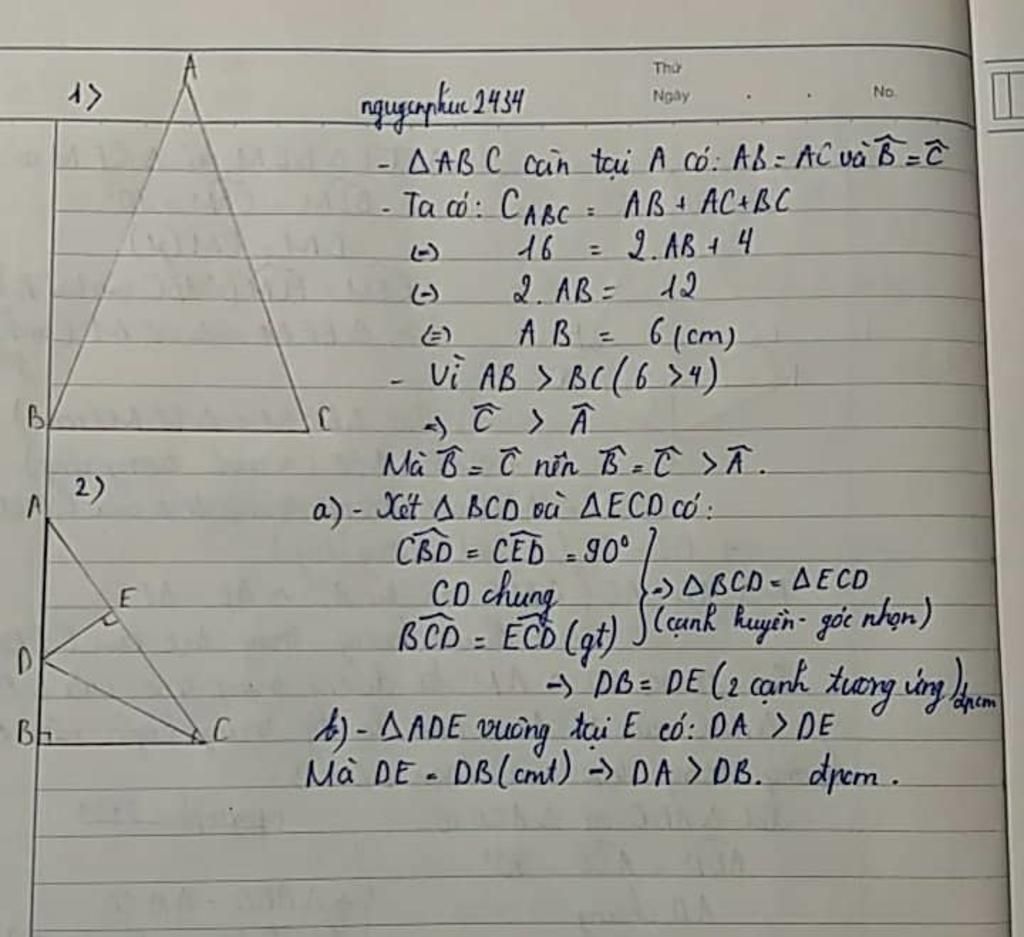 1>
A
B
C
nguyenphuc2434
Thứ
Ngày . . No.
- ΔABC cân tại A có: AB = AC và B̂ = Ĉ
- Ta có: C_ABC = AB + AC + BC
(=) 16 = 2.AB + 4
(=) 2.AB = 12
(=) AB = 6 (cm)
- Vì AB > BC (6 > 4)
=> Ĉ > Â
Mà B̂ = Ĉ nên B̂ = Ĉ > Â.
2)
A
E
D
B
C
a) - Xét Δ BCD và ΔECD có:
CBD̂ = CED̂ = 90°
CD chung
BCD̂ = ECD̂ (gt)
=> ΔBCD = ΔECD
(cạnh huyền - góc nhọn)
=> DB = DE (2 cạnh tương ứng) đpcm
b) - ΔADE vuông tại E có: DA > DE
Mà DE = DB (cmt) => DA > DB. đpcm.